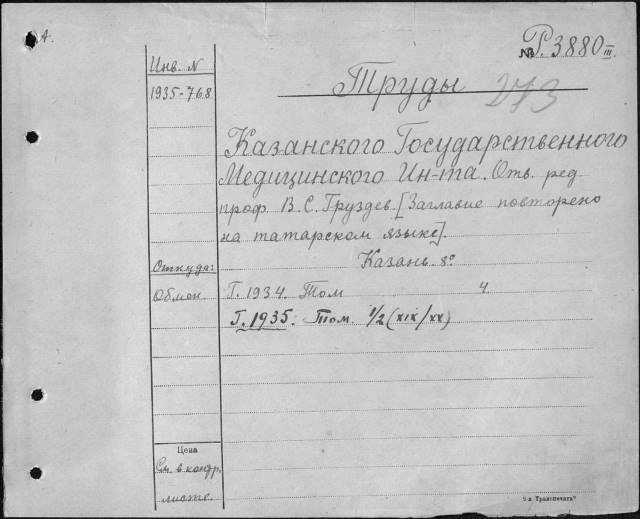 А.
№ Р. 3880 III.
Инв. N
Труды 273
1935-768
Казанского Государственного
Медицинского Ин-та. Отв. ред.
проф. В. С. Груздев. [Заглавие повторено
на татарском языке].
Казань. 8º
Откуда:
Обмен. Г. 1934. Том 4.
Г. 1935. Том. 1/2 (XIX/XX)
Цена
См. в контр.
листе.
"Транспечать"